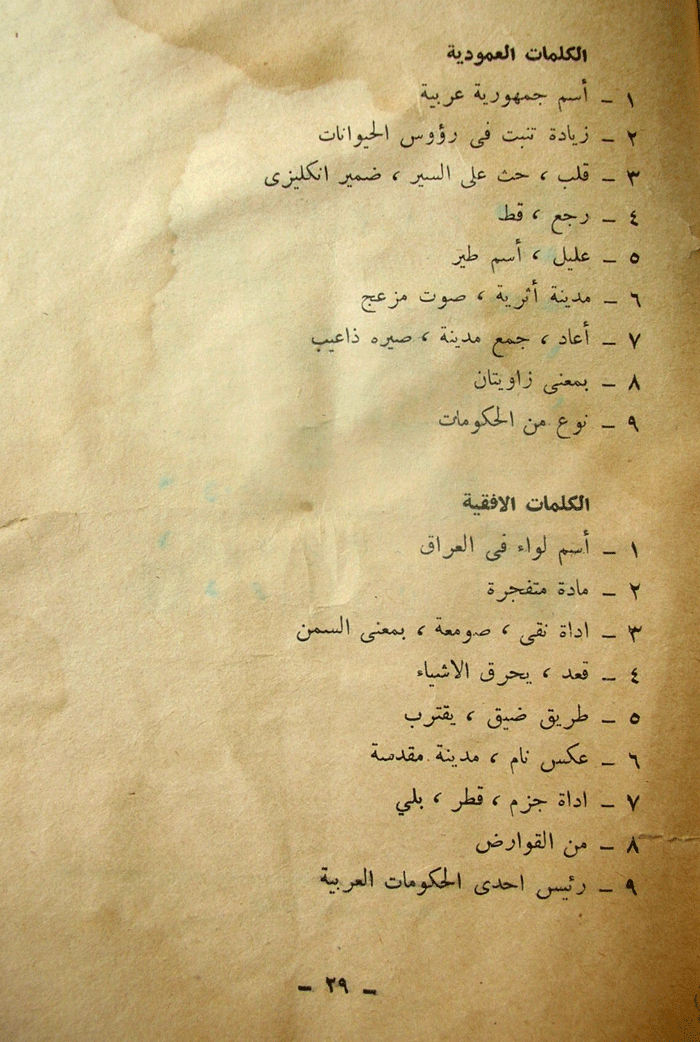 الكلمات العمودية
١ – أسم جمهورية عربية
٢ – زيادة تنبت فى رؤوس الحيوانات
٣ – قلب ، حث على السير ، ضمير انكليزى
٤ – رجع ، قط
٥ – عليل ، أسم طير
٦ – مدينة أثرية ، صوت مزعج
٧ – أعاد ، جمع مدينة ، صيره ذاعيب
٨ – بمعنى زاويتان
٩ – نوع من الحكومات
الكلمات الافقية
١ – أسم لواء فى العراق
٢ – مادة متفجرة
٣ – اداة نقى ، صومعة ، بمعنى السمن
٤ – قعد ، يحرق الاشياء
٥ – طريق ضيق ، يقترب
٦ – عكس نام ، مدينة مقدسة
٧ – اداة جزم ، قطر ، بلي
٨ – من القوارض
٩ – رئيس احدى الحكومات العربية
– ٢٩ –